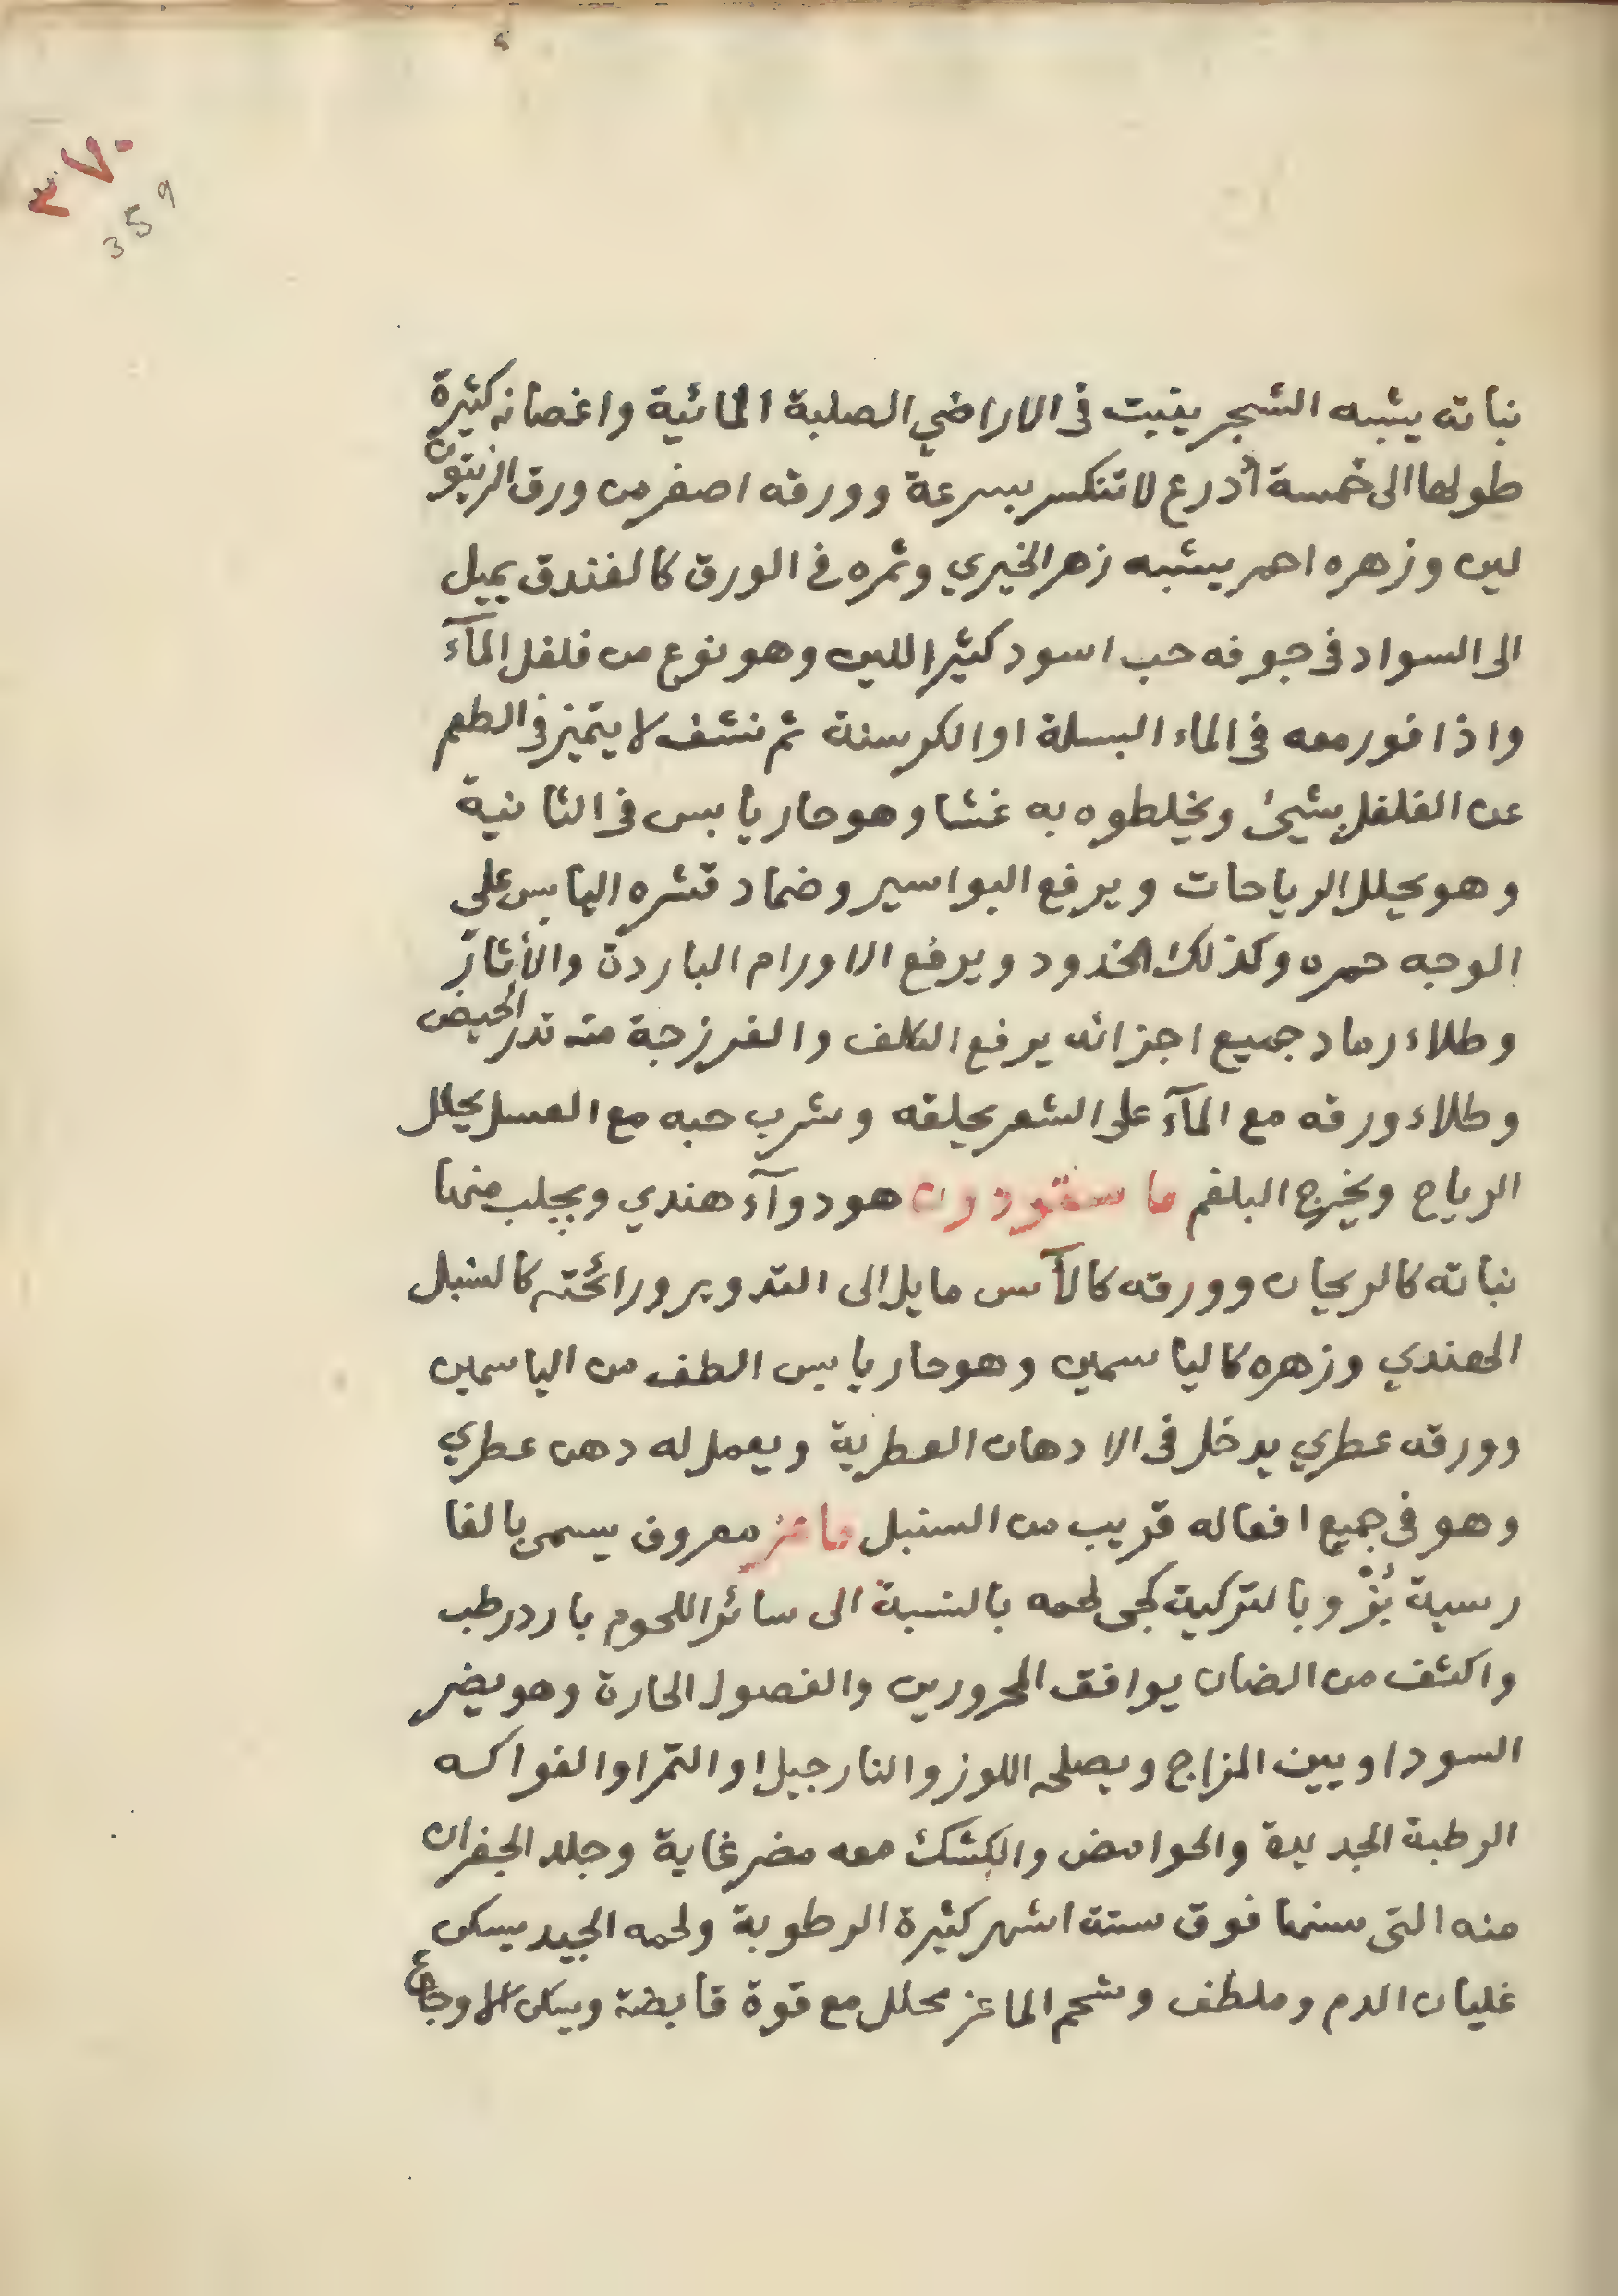 ٣٧٠
359
نباته يشبه الشجر ينبت فى الاراضي الصلبة المائية واغصانه كثيرة
طولها الى خمسة أذرع لا تنكسر بسرعة وورقه اصغر من ورق الزيتون
لين وزهره احمر يشبه زهر الخيري وثمره فى الورق كالفندق يميل
الى السواد فى جوفه حب اسود كثير اللين وهو نوع من فلفل المآء
واذا فور معه فى الماء البسلة او الكرسنة ثم نشف لا يتميز فى الطعم
عن الفلفل بشيئ ويخلطوه به غشا وهو حار يابس فى الثانية
وهو يحلل الرياحات ويرفع البواسير وضماد قشره اليابس على
الوجه حمره وكذلك الخدود ويرفع الاورام الباردة والأثار
وطلاء رماد جميع اجزائه يرفع الكلف والفرزجة منه تدر الحيض
وطلاء ورقه مع المآء على الشعر يحلقه وشرب حبه مع العسل يحلل
الرياح ويخرج البلغم ما ستودون هو دوآء هندي ويجلب منها
نباته كالريحان وورقه كالآس مايل الى التدوير ورائحته كالسنبل
الهندي وزهره كالياسمين وهو حار يابس الطف من الياسمين
وورقه عطري يدخل فى الادهان العطرية ويعمل له دهن عطري
وهو فى جميع افعاله قريب من السنبل ماعز معروف يسمى بالفا
رسية بُزْ وبالتركية كجى لحمه بالنسبة الى سائر اللحوم بارد رطب
واكثف من الضان يوافق المحرورين والفصول الحارة وهو يضر
السوداويين المزاج ويصلحه اللوز والنارجيل او التمر او الفواكه
الرطبة الجديدة والحوامض والكشك معه مضر غاية وجلد الجفران
منه التى سنها فوق ستة اشهر كثيرة الرطوبة ولحمه الجيد يسكن
غليان الدم وملطف وشحم الماعز محلل مع قوة قابضة ويسكن الاوجاع